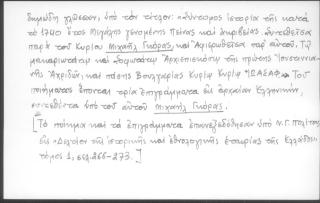 δημώδη γλῶσσαν, ὑπὸ τὸν τίτλον: «Σύντομος ἱστορία τῆς κατὰ
τὸ 1740 ἔτος Μιχάλης γενομένης Πείνας καὶ ἀκριβείας. Συντεθεῖσα
παρὰ τοῦ Κυρίου Μιχαὴλ Γκόρας, καὶ ἀφιερωθεῖσα παρ' αὐτοῦ. Τῷ
μακαριωτάτῳ καὶ Ἀρχιεπισκόπῳ τῆς πρώτης Ἰουστινια-
νῆς Ἀχριδῶν, καὶ πάσης Βουλγαρίας Κυρίῳ Κυρίῳ ἸΩΑΣΑΦ». Τοῦ
ποιήματος ἕπονται τρία ἐπιγράμματα εἰς ἀρχαίαν Ἑλληνικήν,
συντεθέντα ὑπὸ τοῦ αὐτοῦ Μιχαὴλ Γκόρας.
[Τὸ ποίημα καὶ τὰ ἐπιγράμματα ἐπανεξεδόθησαν ὑπὸ Ν. Γ. Πολίτου
εἰς «Δελτίον τῆς ἱστορικῆς καὶ ἐθνολογικῆς ἑταιρίας τῆς Ἑλλάδος»
τόμος 1, σελ. 266-273.]